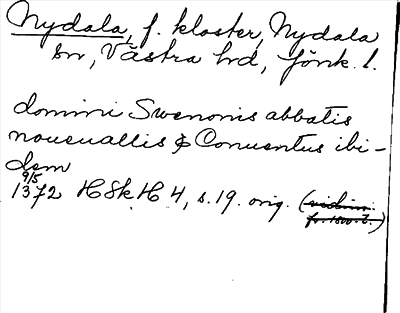 Nydala, f. kloster, Nydala
sn, Västra hd, Jönk. l.
domini Swenonis abbatis
noueuallis & Conuentus ibi-
dem
9/5
1372 HSkH 4, s. 19. orig. (vidim.
fr. 1500-t.)